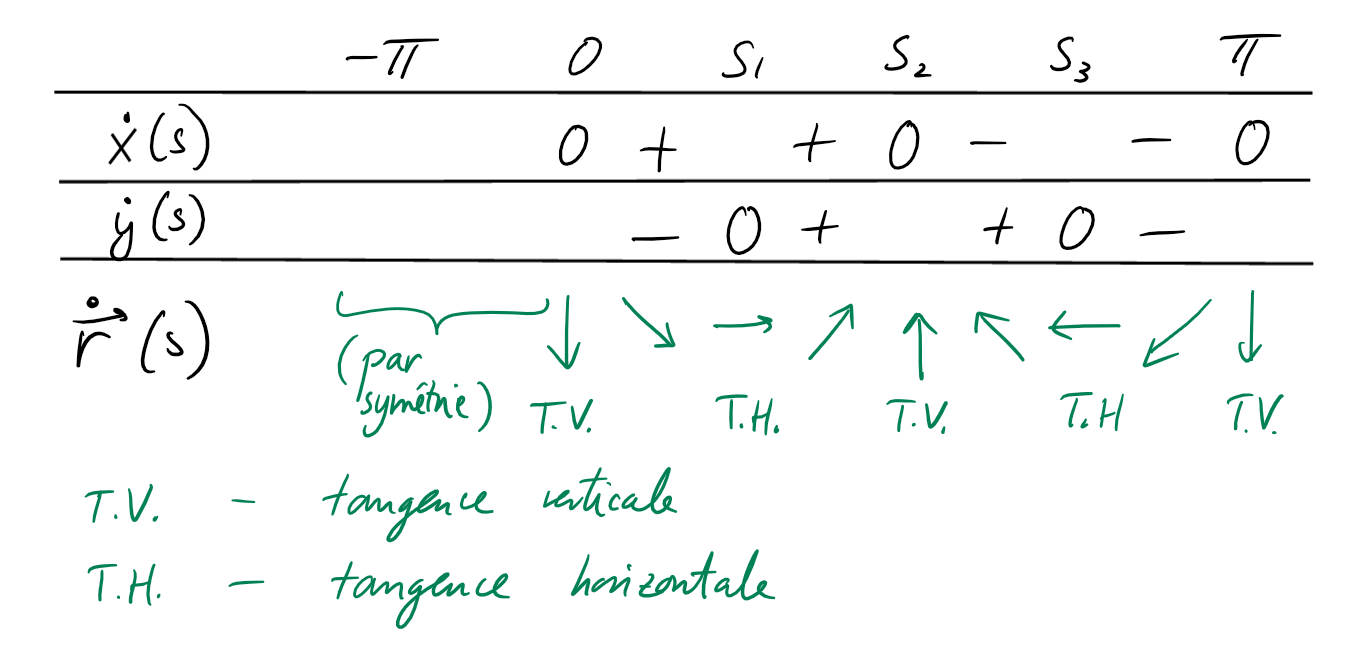 -π 0 S₁ S₂ S₃ π
ẋ(s) 0 + + 0 - - 0
ẏ(s) - 0 + + 0 -
ṙ⃗(s) ↓ ↘ → ↗ ↑ ↖ ← ↙ ↓
(par
symétrie) T.V. T.H. T.V. T.H T.V.
T.V. - tangence verticale
T.H. - tangence horizontale